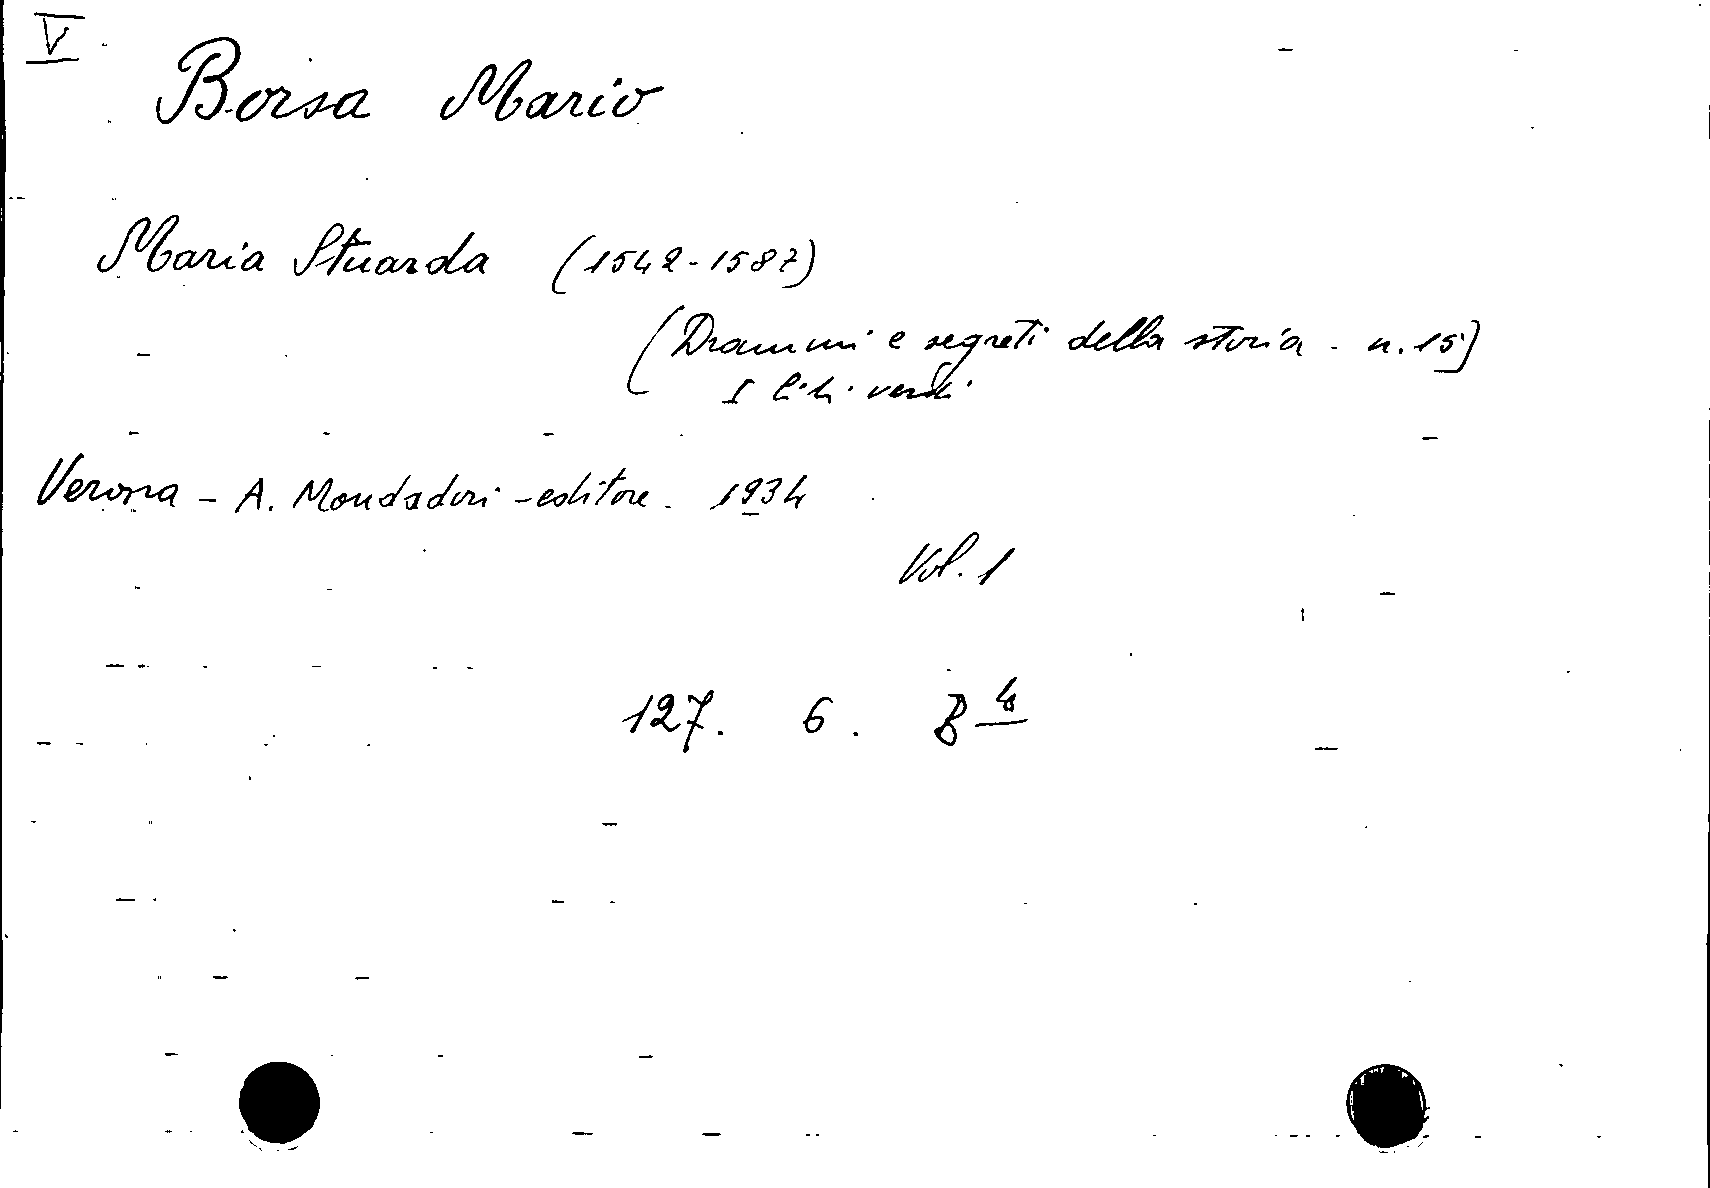 V
Borsa Mario
Maria Stuarda (1542-1587)
(Drammi e segreti della storia - n. 15)
I libri verdi
Verona - A. Mondadori - editore. 1934
Vol. 1
127. 6. B 4